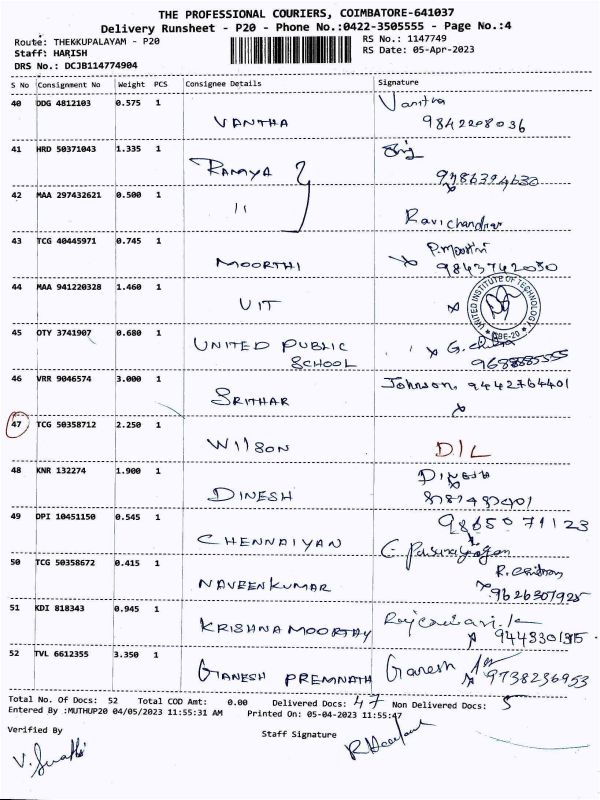 THE PROFESSIONAL COURIERS, COIMBATORE-641037
Delivery Runsheet - P20 - Phone No.:0422-3505555 - Page No.:4
Route: THEKKUPALAYAM - P20 RS No.: 1147749
Staff: HARISH RS Date: 05-Apr-2023
DRS No.: DCJB114774904
S No Consignment No Weight PCS Consignee Details Signature
40 DDG 4812103 0.575 1 VANTHA Vantha
9842208036
41 HRD 50371043 1.335 1 RAMYA
42 MAA 297432621 0.500 1 11 Ravichandran
43 TCG 40445971 0.745 1 MOORTHI P. Moorthi
9843742050
44 MAA 941220328 1.460 1 UIT UNITED INSTITUTE OF TECHNOLOGY
45 OTY 3741907 0.680 1 UNITED PUBLIC SCHOOL G. Chitra
46 VRR 9046574 3.000 1 SRITHAR Johnson. 9442764401
47 TCG 50358712 2.250 1 WIlSON D/L
48 KNR 132274 1.900 1 DINESH
49 DPI 10451150 0.545 1 CHENNAIYAN 9865071123
50 TCG 50358672 0.415 1 NAVEENKUMAR
9626301925
51 KDI 818343 0.945 1 KRISHNAMOORTHY
52 TVL 6612355 3.350 1 GANESH PREMNATH Ganesh
9738236953
Total No. Of Docs: 52 Total COD Amt: 0.00 Delivered Docs: 47 Non Delivered Docs: 5
Entered By :MUTHUP20 04/05/2023 11:55:31 AM Printed On: 05-04-2023 11:55:47
Verified By Staff Signature